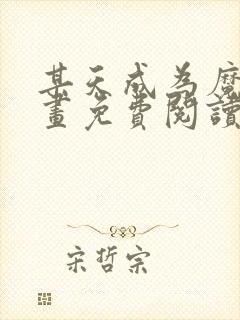 某天成为魔
畫免費閱讀
宋哲宗